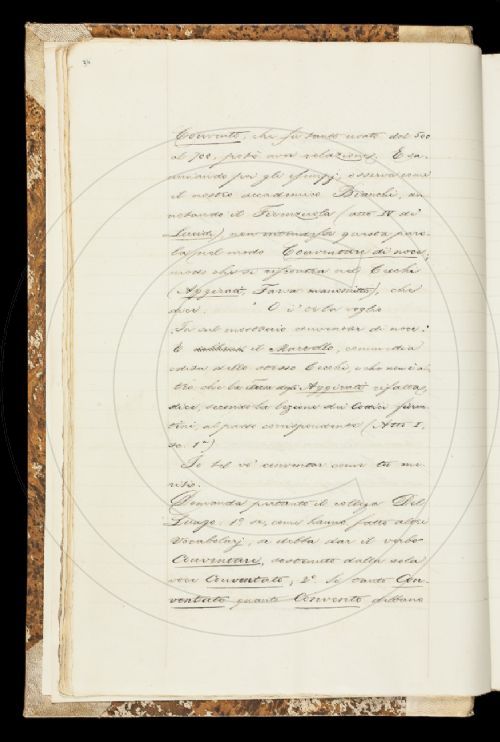 34
Convento, che fu tanto usato dal 500
al 700, potè aver relazione. E sa-
minando poi gli esempj, osserva come
il nostro accademico Bianchi, an-
notando il Firenzuola (atto IV dei
Lucidi) non intendesse questa paro-
la nel modo Conventare di noce,
modo che si riscontra nel Cecchi
(Aggirati, Farsa manoscritta), che
dice: " O i' ve la voglio
In sul mostaccio conventar di noce."
E il Martello, commedia
edita dello stesso Cecchi, e che non è al-
tro che la Aggirati rifatta,
dice, secondo la lezione dei Codici fioren-
tini, al passo corrispondente (Atto I,
sc. 1ª)
Io tel vo' conventar come tu me-
riti.
Domanda pertanto il collega Del
Lungo: 1º se, come hanno fatto altri
Vocabolarj, si debba dar il verbo
Conventare, sostenuto dalla sola
voce Conventato; 2º Se tanto Con-
ventato quanto Convento debbano